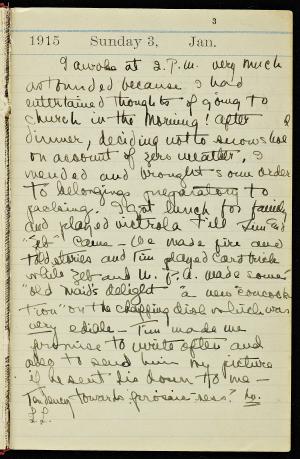 3
1915 Sunday 3, Jan.
I awoke at 2. P.M. very much
astounded because I had
entertained thoughts of going to
church in the morning! After
dinner, deciding not to snowshoe
on account of zero weather, I
mended and brought some order
to belongings preparatory to
packing. I got lunch for family
and played victrola till Tim and
"Zeb" came - We made fire and
told stories and Tim played card tricks
while Zeb and M. F. A. made some
"old maid's delight" a new "concock-
tion" on the chaffing dish which was
very edible - Tim made me
promise to write often and
also to send him my picture
if he sent his down to me -
Tendency towards prosiness? No.
L.L.